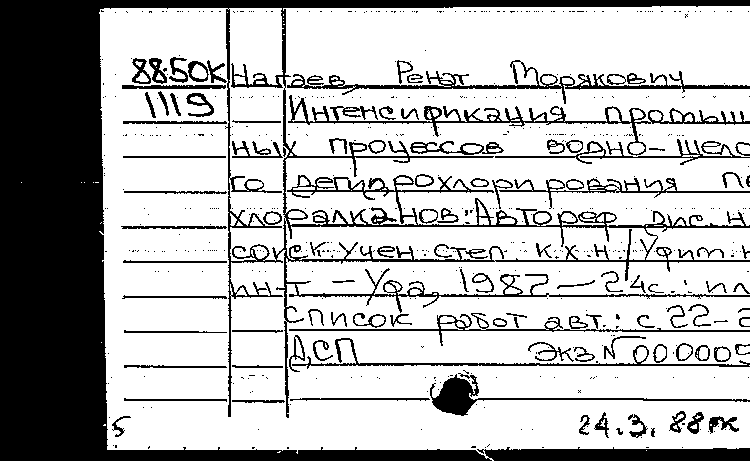 88-50К Нагаев, Ренат Морякович
1119 Интенсификация промыш
ных процессов водно-щело
го дегидрохлорирования по
хлоралканов: Автореф. дис. н
соиск. учен. степ. к.х.н / Уфим. н
ин-т. – Уфа, 1987 – 24 с.: ил
Список работ авт.: с. 22-2
ДСП Экз. N 000009
24.3.88 пк
5